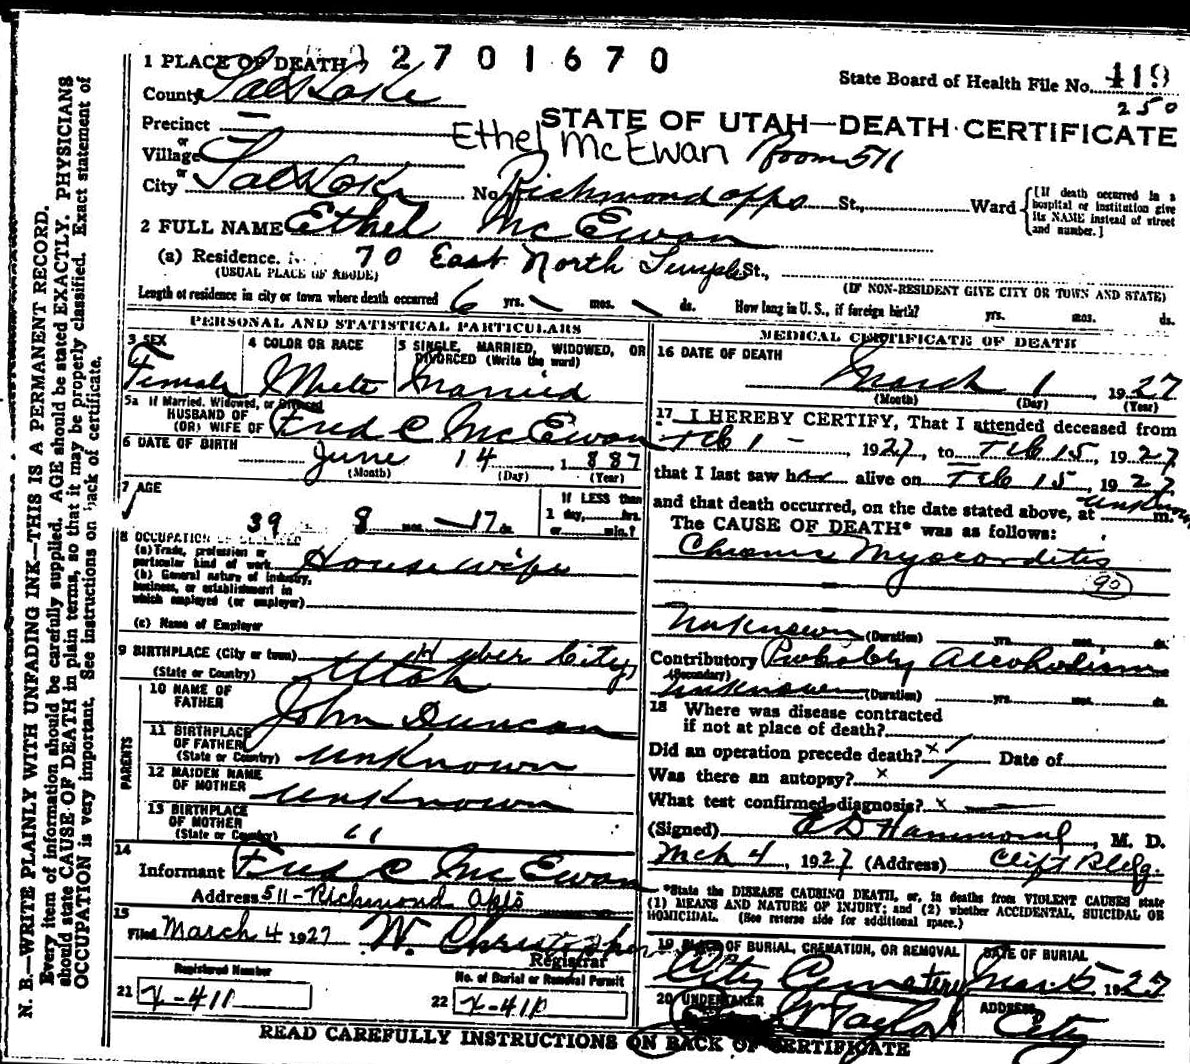 2701670
1 PLACE OF DEATH
State Board of Health File No. 419
County Salt Lake
250
STATE OF UTAH—DEATH CERTIFICATE
Precinct —
Ethel McEwan Room 511
or
Village
or
City Salt Lake No. Richmond apps St., Ward
[If death occurred in a hospital or institution give its NAME instead of street and number.]
2 FULL NAME Ethel McEwan
(a) Residence. 70 East North Temple St.,
(USUAL PLACE OF ABODE)
(IF NON-RESIDENT GIVE CITY OR TOWN AND STATE)
Length of residence in city or town where death occurred 6 yrs. mos. ds. How long in U. S., if foreign birth? yrs. mos. ds.
PERSONAL AND STATISTICAL PARTICULARS
3 SEX
Female
4 COLOR OR RACE
White
5 SINGLE, MARRIED, WIDOWED, OR DIVORCED (Write the word)
Married
5a If Married, Widowed, or Divorced
HUSBAND OF
(OR) WIFE OF Fred C McEwan
6 DATE OF BIRTH
June 14, 1887
(Month) (Day) (Year)
7 AGE
39 8 mos. 17 ds.
If LESS than
1 day, hrs.
or min.?
8 OCCUPATION OF DECEASED
(a) Trade, profession or
particular kind of work Housewife
(b) General nature of industry,
business, or establishment in
which employed (or employer)
(c) Name of Employer
9 BIRTHPLACE (City or town) Heber City,
(State or Country) Utah
PARENTS
10 NAME OF
FATHER John Duncan
11 BIRTHPLACE
OF FATHER
(State or Country) unknown
12 MAIDEN NAME
OF MOTHER unknown
13 BIRTHPLACE
OF MOTHER
(State or Country) "
14
Informant Fred C McEwan
Address 511-Richmond Apts
15
Filed March 4 1927 W. Christopher
Registrar
Registered Number
21 X-411
No. of Burial or Removal Permit
22 X-411
MEDICAL CERTIFICATE OF DEATH
16 DATE OF DEATH
March 1, 1927
(Month) (Day) (Year)
17 I HEREBY CERTIFY, That I attended deceased from
Feb 1 -, 1927, to Feb 15, 1927
that I last saw her alive on Feb 15, 1927
and that death occurred, on the date stated above, at unknown m.
The CAUSE OF DEATH* was as follows:
Chronic Myocarditis
90
Unknown (Duration) yrs. mos. ds.
Contributory Probably Alcoholism
(Secondary)
Unknown (Duration) yrs. mos. ds.
18 Where was disease contracted
if not at place of death?
Did an operation precede death? x Date of
Was there an autopsy? x
What test confirmed diagnosis? x
(Signed) E D Hammond, M. D.
Mch 4, 1927 (Address) Clift Bldg.
*State the DISEASE CAUSING DEATH, or, in deaths from VIOLENT CAUSES state
(1) MEANS AND NATURE OF INJURY; and (2) whether ACCIDENTAL, SUICIDAL OR
HOMICIDAL. (See reverse side for additional space.)
19 PLACE OF BURIAL, CREMATION, OR REMOVAL
City Cemetery
DATE OF BURIAL
Mar 5, 1927
20 UNDERTAKER
Taylor
ADDRESS
City
READ CAREFULLY INSTRUCTIONS ON BACK OF CERTIFICATE
N. B.—WRITE PLAINLY WITH UNFADING INK—THIS IS A PERMANENT RECORD.
Every item of information should be carefully supplied. AGE should be stated EXACTLY. PHYSICIANS
should state CAUSE OF DEATH in plain terms, so that it may be properly classified. Exact statement of
OCCUPATION is very important. See instructions on back of certificate.